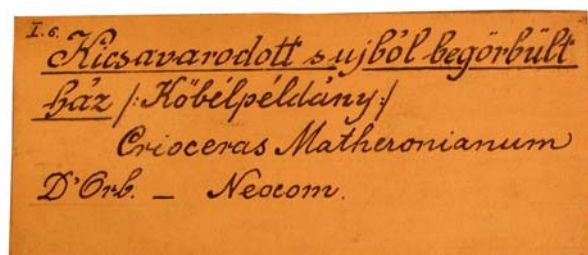 I.6.
Kicsavarodott s ujból begörbült
ház /:Kőbélpéldány:/
Crioceras Matheronianum
D'Orb. — Neocom.